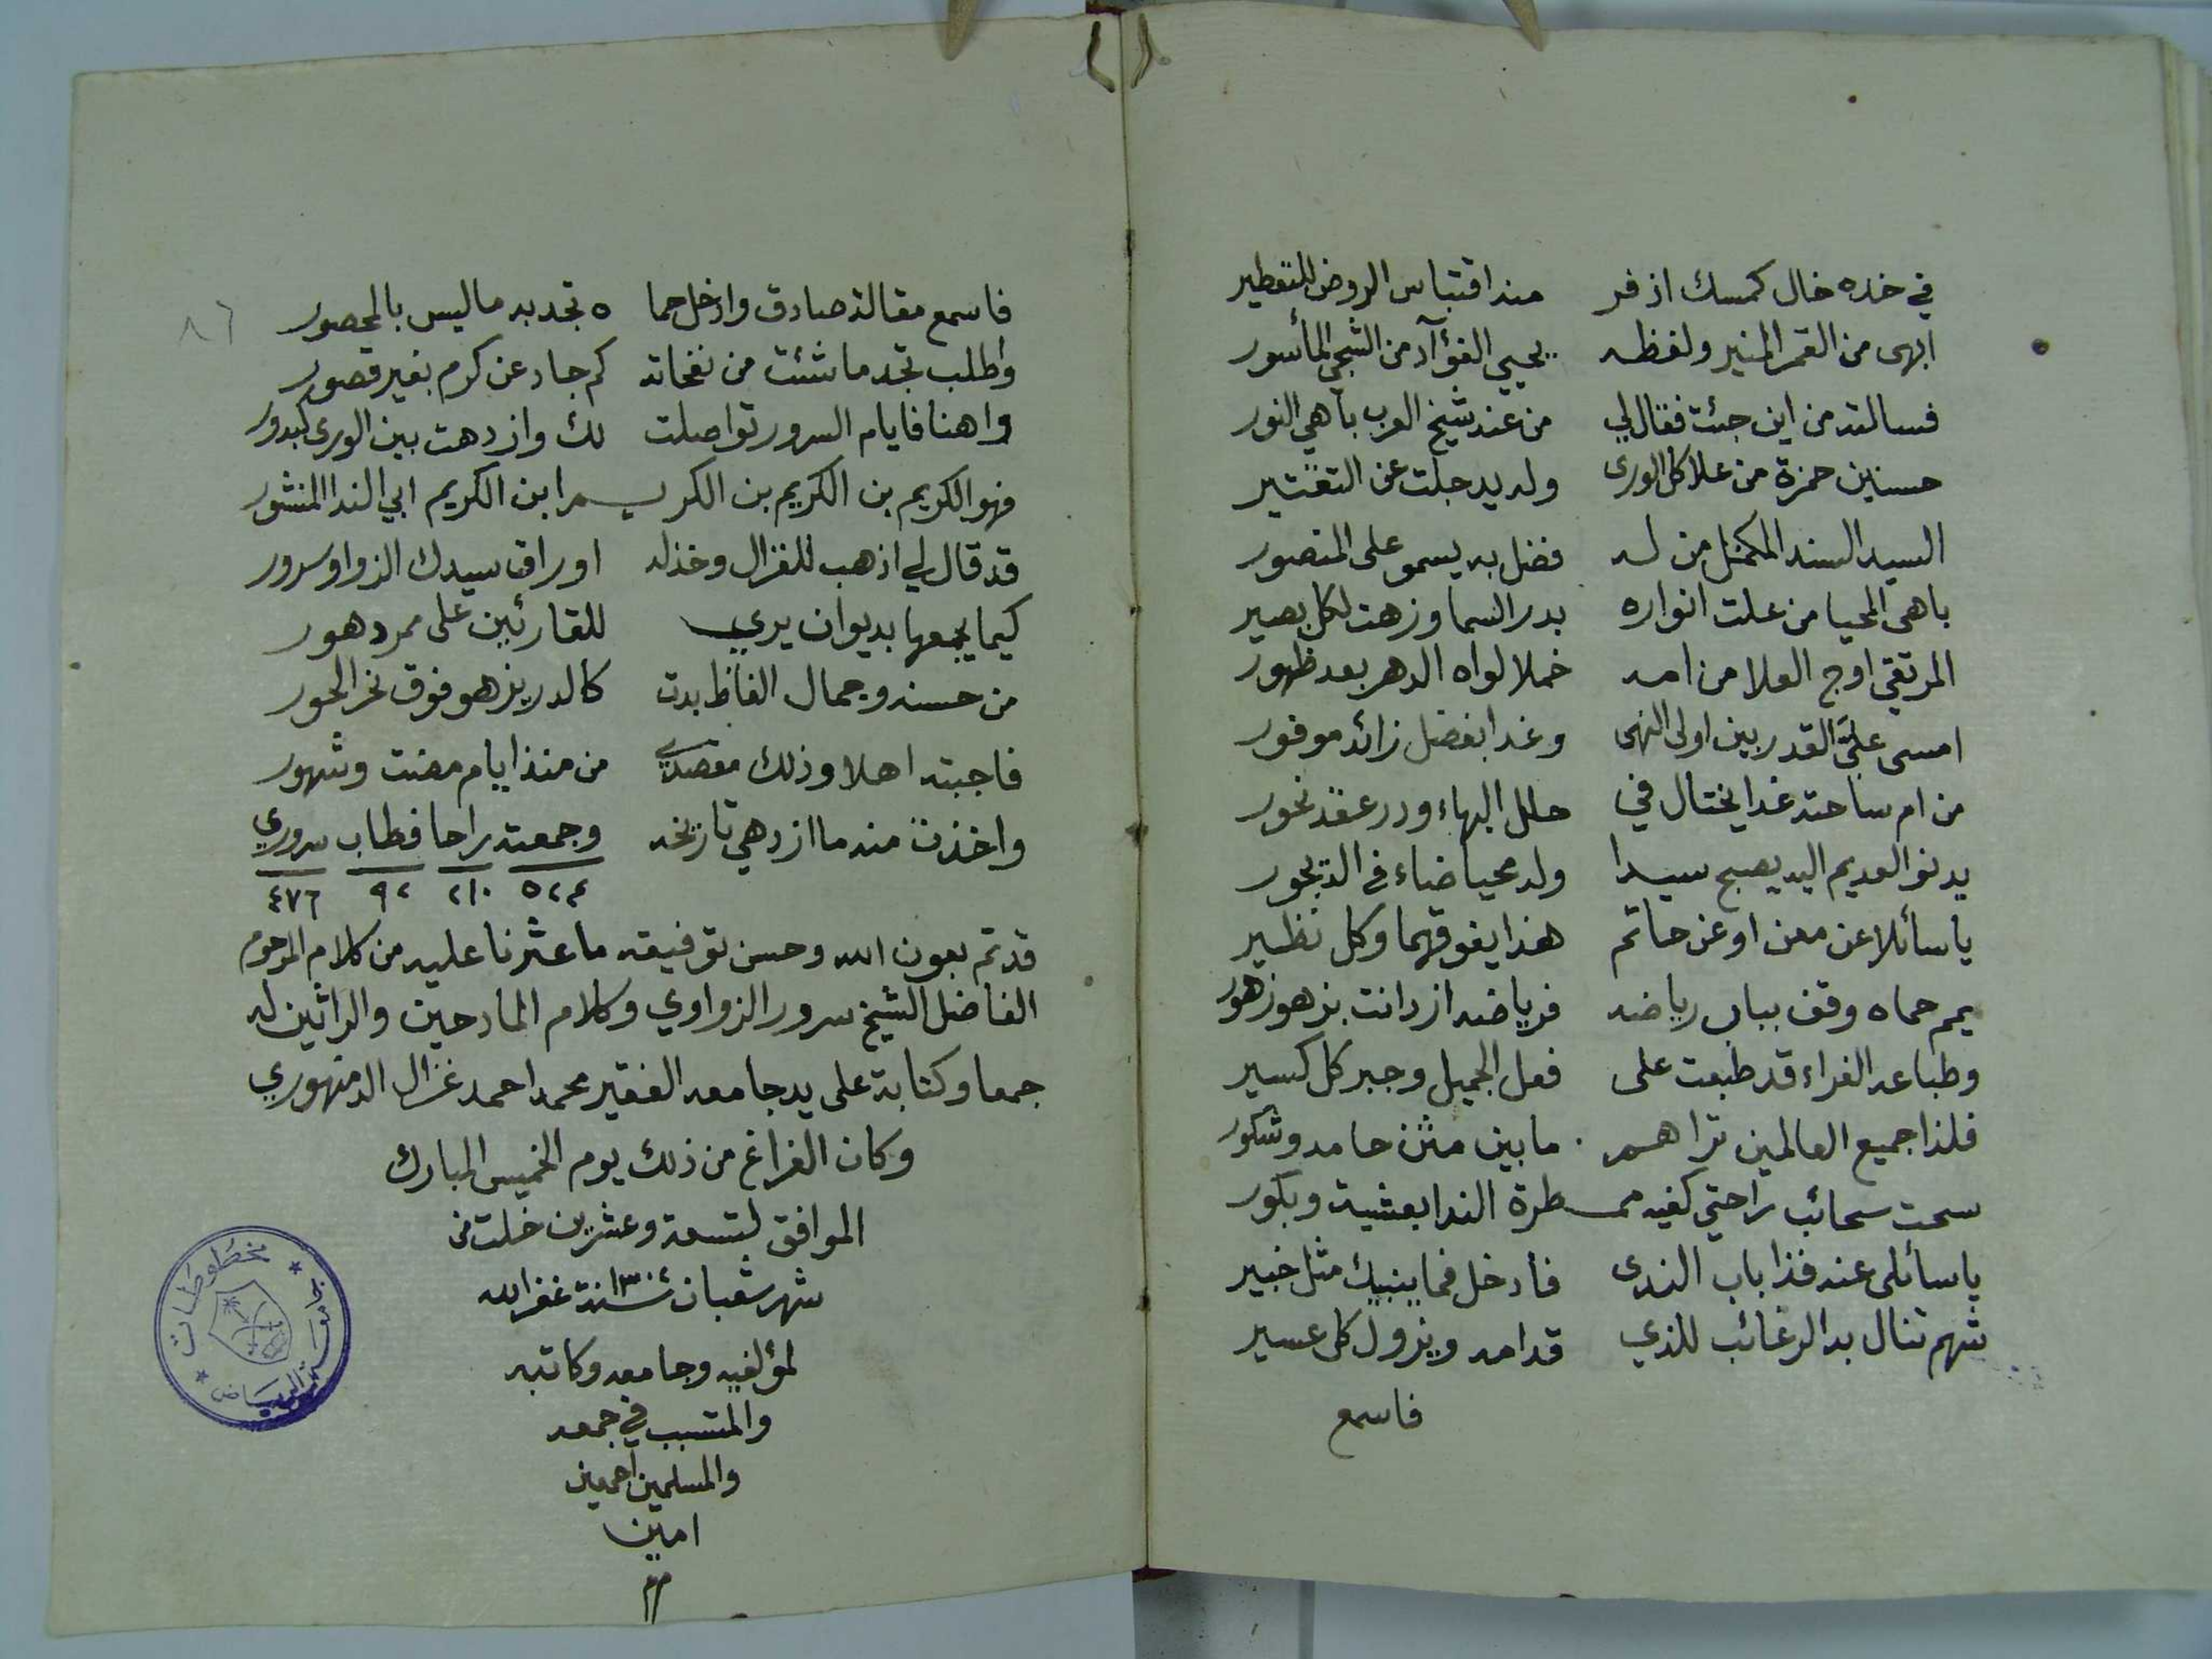 في خده خال كمسك اذفر منه اقتباس الروض للتعطير
ابهى من القمر المنير ولفظه يحيي الفؤآد من الشجي المأسور
فسالته من اين جئت فقال لي من عند شيخ العرب باهي النور
حسنين حمزة من علا كل الورى وله يد جلت عن التقتير
السيد السند المكمل من له فضل به يسمو على المنصور
باهي المحيا من علت انواره بدر السما وزهت لكل بصير
المرتقي اوج العلا من امه خملا لواه الدهر بعد ظهور
امسى عليَّ القدر بين اولى النهى وغدا بفضل زائد موفور
من ام ساحته غدا يختال في حلل البهاء ودر عقد نحور
يدنو العديم اليه يصبح سيدا وله محيا ضاء في الديجور
ياسائلا عن معن او عن حاتم هذا يفوقهما وكل نظير
يمم حماه وقف بباب رياضه فرياضه ازدانت بزهو زهور
وطباعه الغراء قد طبعت على فعل الجميل وجبر كل كسير
فلذا جميع العالمين تراهم مابين مثن حامد وشكور
سحت سحائب راحتي كفيه ممطرة الندا بعشية وبكور
ياسائلى عنه فذا باب الندى فأدخل فما ينبيك مثل خبير
شهم تنال به الرغائب للذي قد امه ويزول كل عسير
فاسمع
٨٦
فاسمع مقالة صادق وادخل حما ه تجد به ماليس بالمحصور
واطلب تجد ماشئت من نفحاته كم جاد عن كرم بغير قصور
واهنا فايام السرور تواصلت لك وازدهت بين الورى كبدور
فهو الكريم بن الكريم بن الكريم ابن الكريم ابي الندا المنشور
قد قال لي اذهب للغزال وخذ له اوراق سيدك الزواو سرور
كيما يجمعها بديوان يري للقارئين على ممر دهور
من حسنه وجمال الفاظ بدت كالدر يزهو فوق نحر الحور
فاجبته اهلا وذلك مقصدي من منذ ايام مضت وشهور
واخذت منه ما ازدهي تاريخه وجمعته راحا فطاب سروري
٥٢٤ ٢١٠ ٩٢ ٤٧٦
قد تم بعون الله وحسن توفيقه ماعثرنا عليه من كلام المرحوم
الفاضل الشيخ سرور الزواوي وكلام المادحين والراثين له
جمعا وكتابة على يد جامعه الفقير محمد احمد غزال الدمنهوري
وكان الفراغ من ذلك يوم الخميس المبارك
الموافق لتسعة وعشرين خلت من
شهر شعبان سنة ١٣٠٤ غفر الله
لمؤلفيه وجامعه وكاتبه
والمتسبب في جمعه
والمسلمين اجمعين
امين
مخطوطات
الرياض